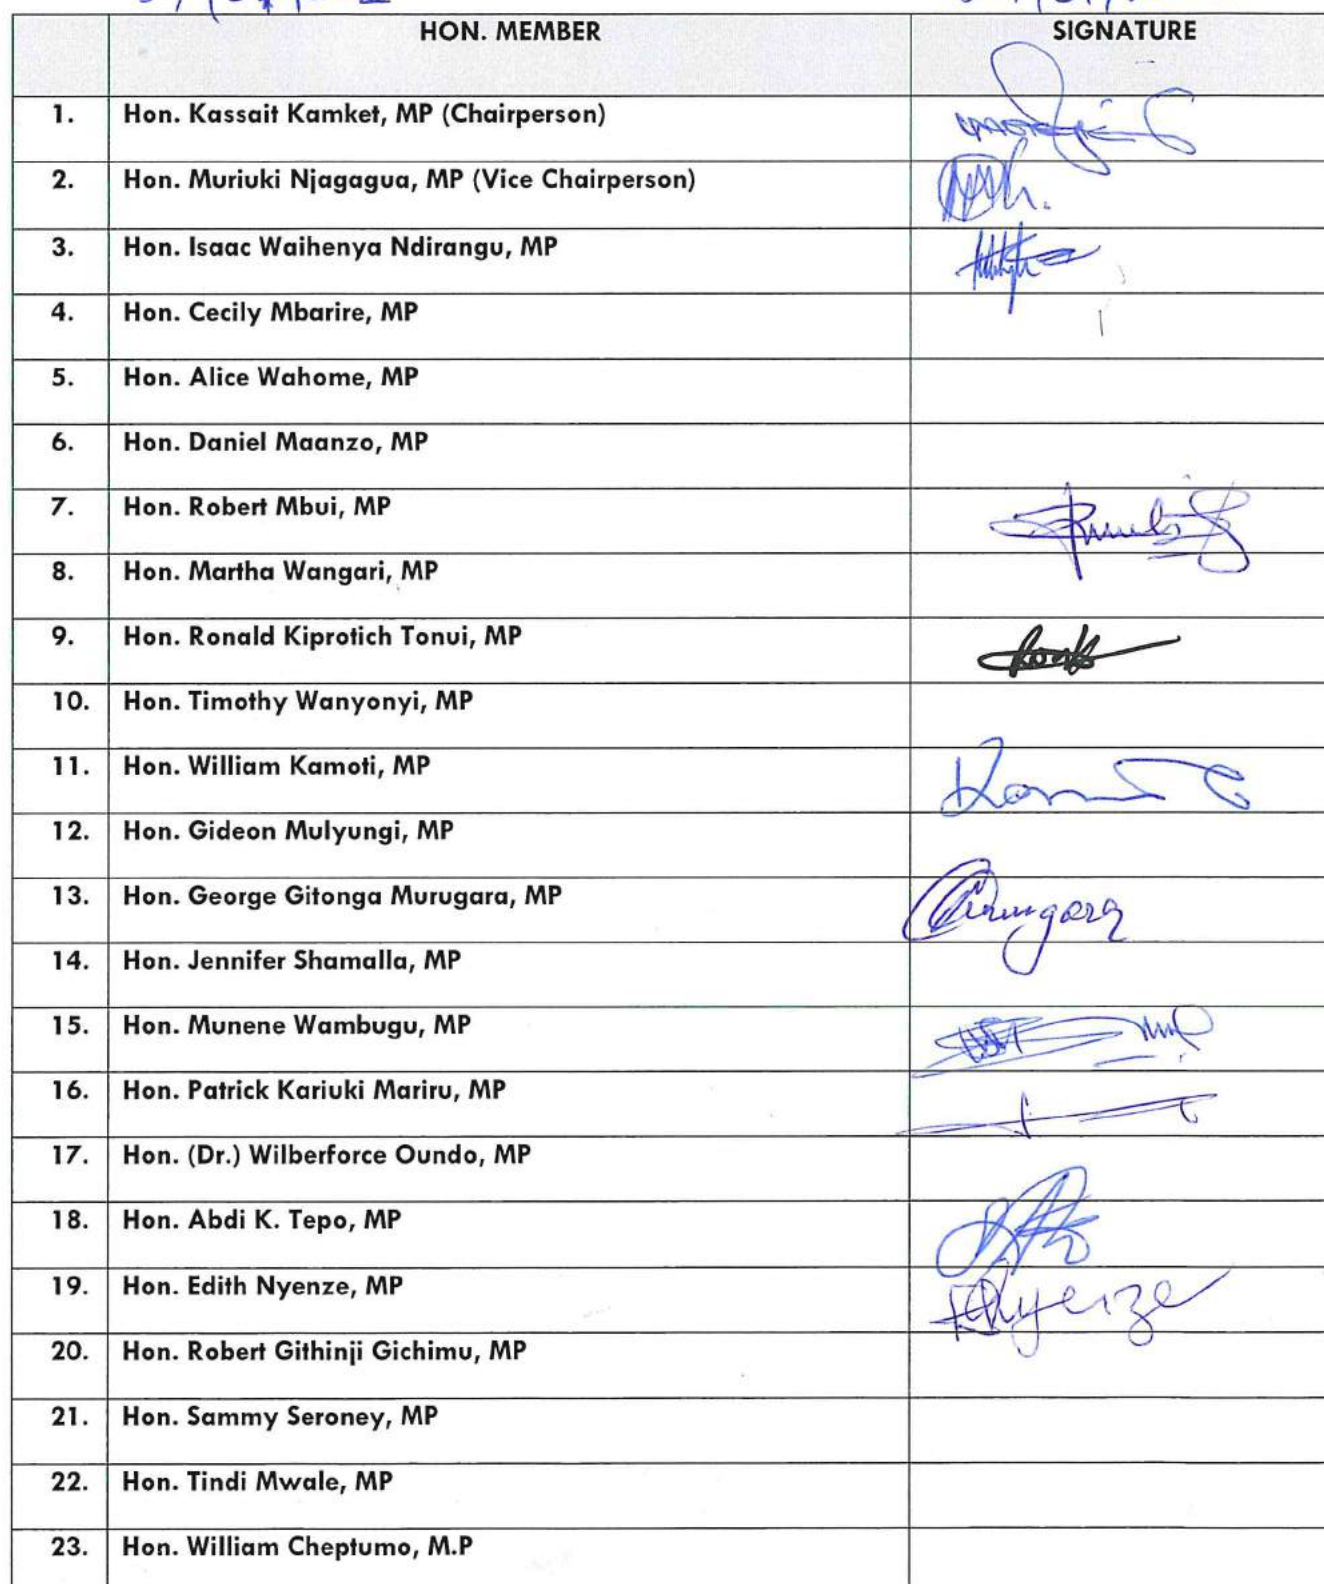 HON. MEMBER SIGNATURE
1. Hon. Kassait Kamket, MP (Chairperson)
2. Hon. Muriuki Njagagua, MP (Vice Chairperson)
3. Hon. Isaac Waihenya Ndirangu, MP
4. Hon. Cecily Mbarire, MP
5. Hon. Alice Wahome, MP
6. Hon. Daniel Maanzo, MP
7. Hon. Robert Mbui, MP
8. Hon. Martha Wangari, MP
9. Hon. Ronald Kiprotich Tonui, MP
10. Hon. Timothy Wanyonyi, MP
11. Hon. William Kamoti, MP
12. Hon. Gideon Mulyungi, MP
13. Hon. George Gitonga Murugara, MP
14. Hon. Jennifer Shamalla, MP
15. Hon. Munene Wambugu, MP
16. Hon. Patrick Kariuki Mariru, MP
17. Hon. (Dr.) Wilberforce Oundo, MP
18. Hon. Abdi K. Tepo, MP
19. Hon. Edith Nyenze, MP Nyenze
20. Hon. Robert Githinji Gichimu, MP
21. Hon. Sammy Seroney, MP
22. Hon. Tindi Mwale, MP
23. Hon. William Cheptumo, M.P